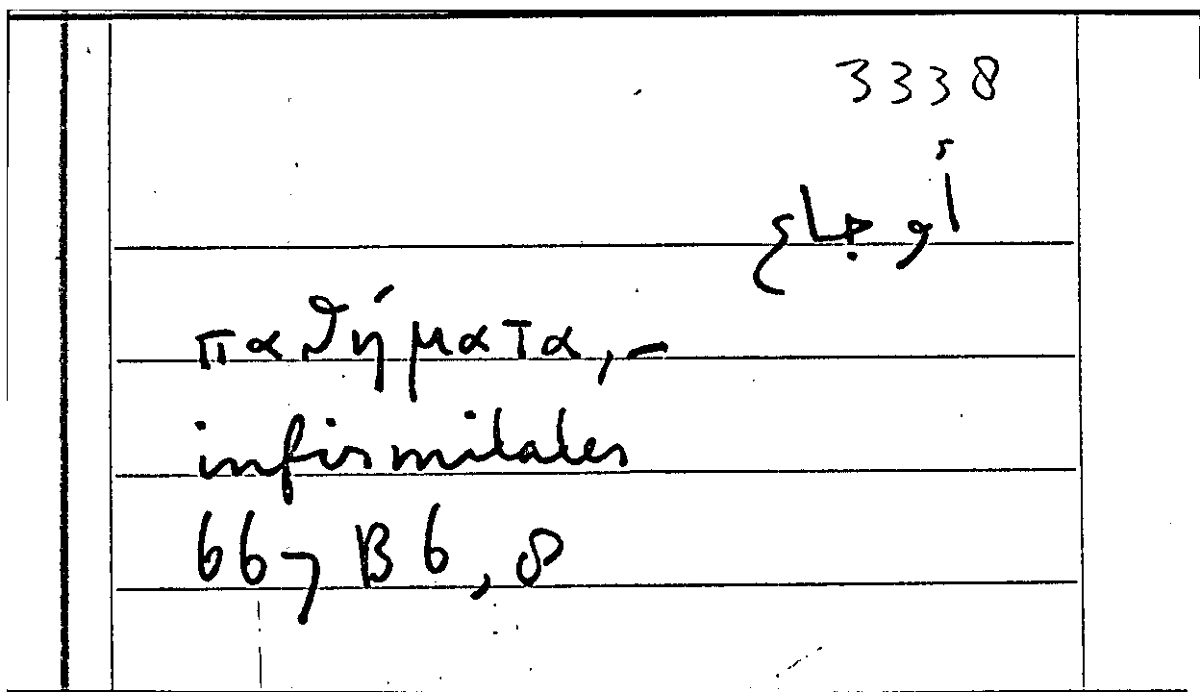 3338
أوجاع
παθήματα,-
infirmitates
667 B 6, 8